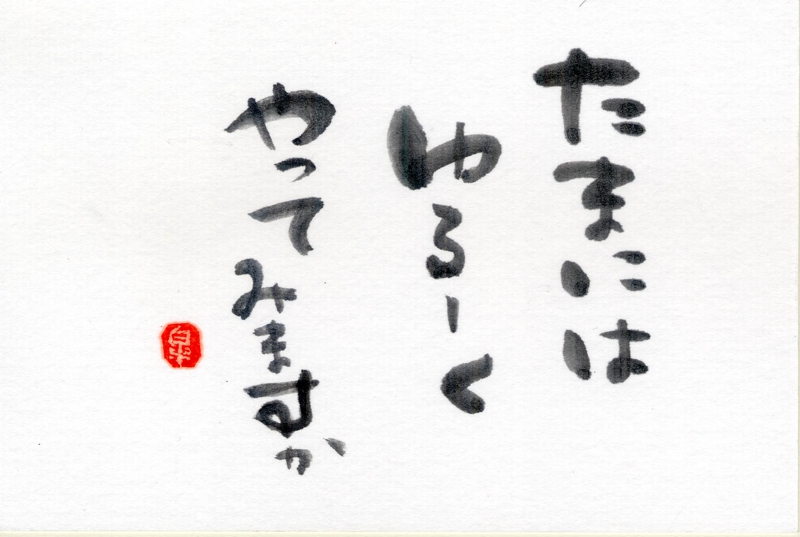 たまには
ゆるーく
やってみますか